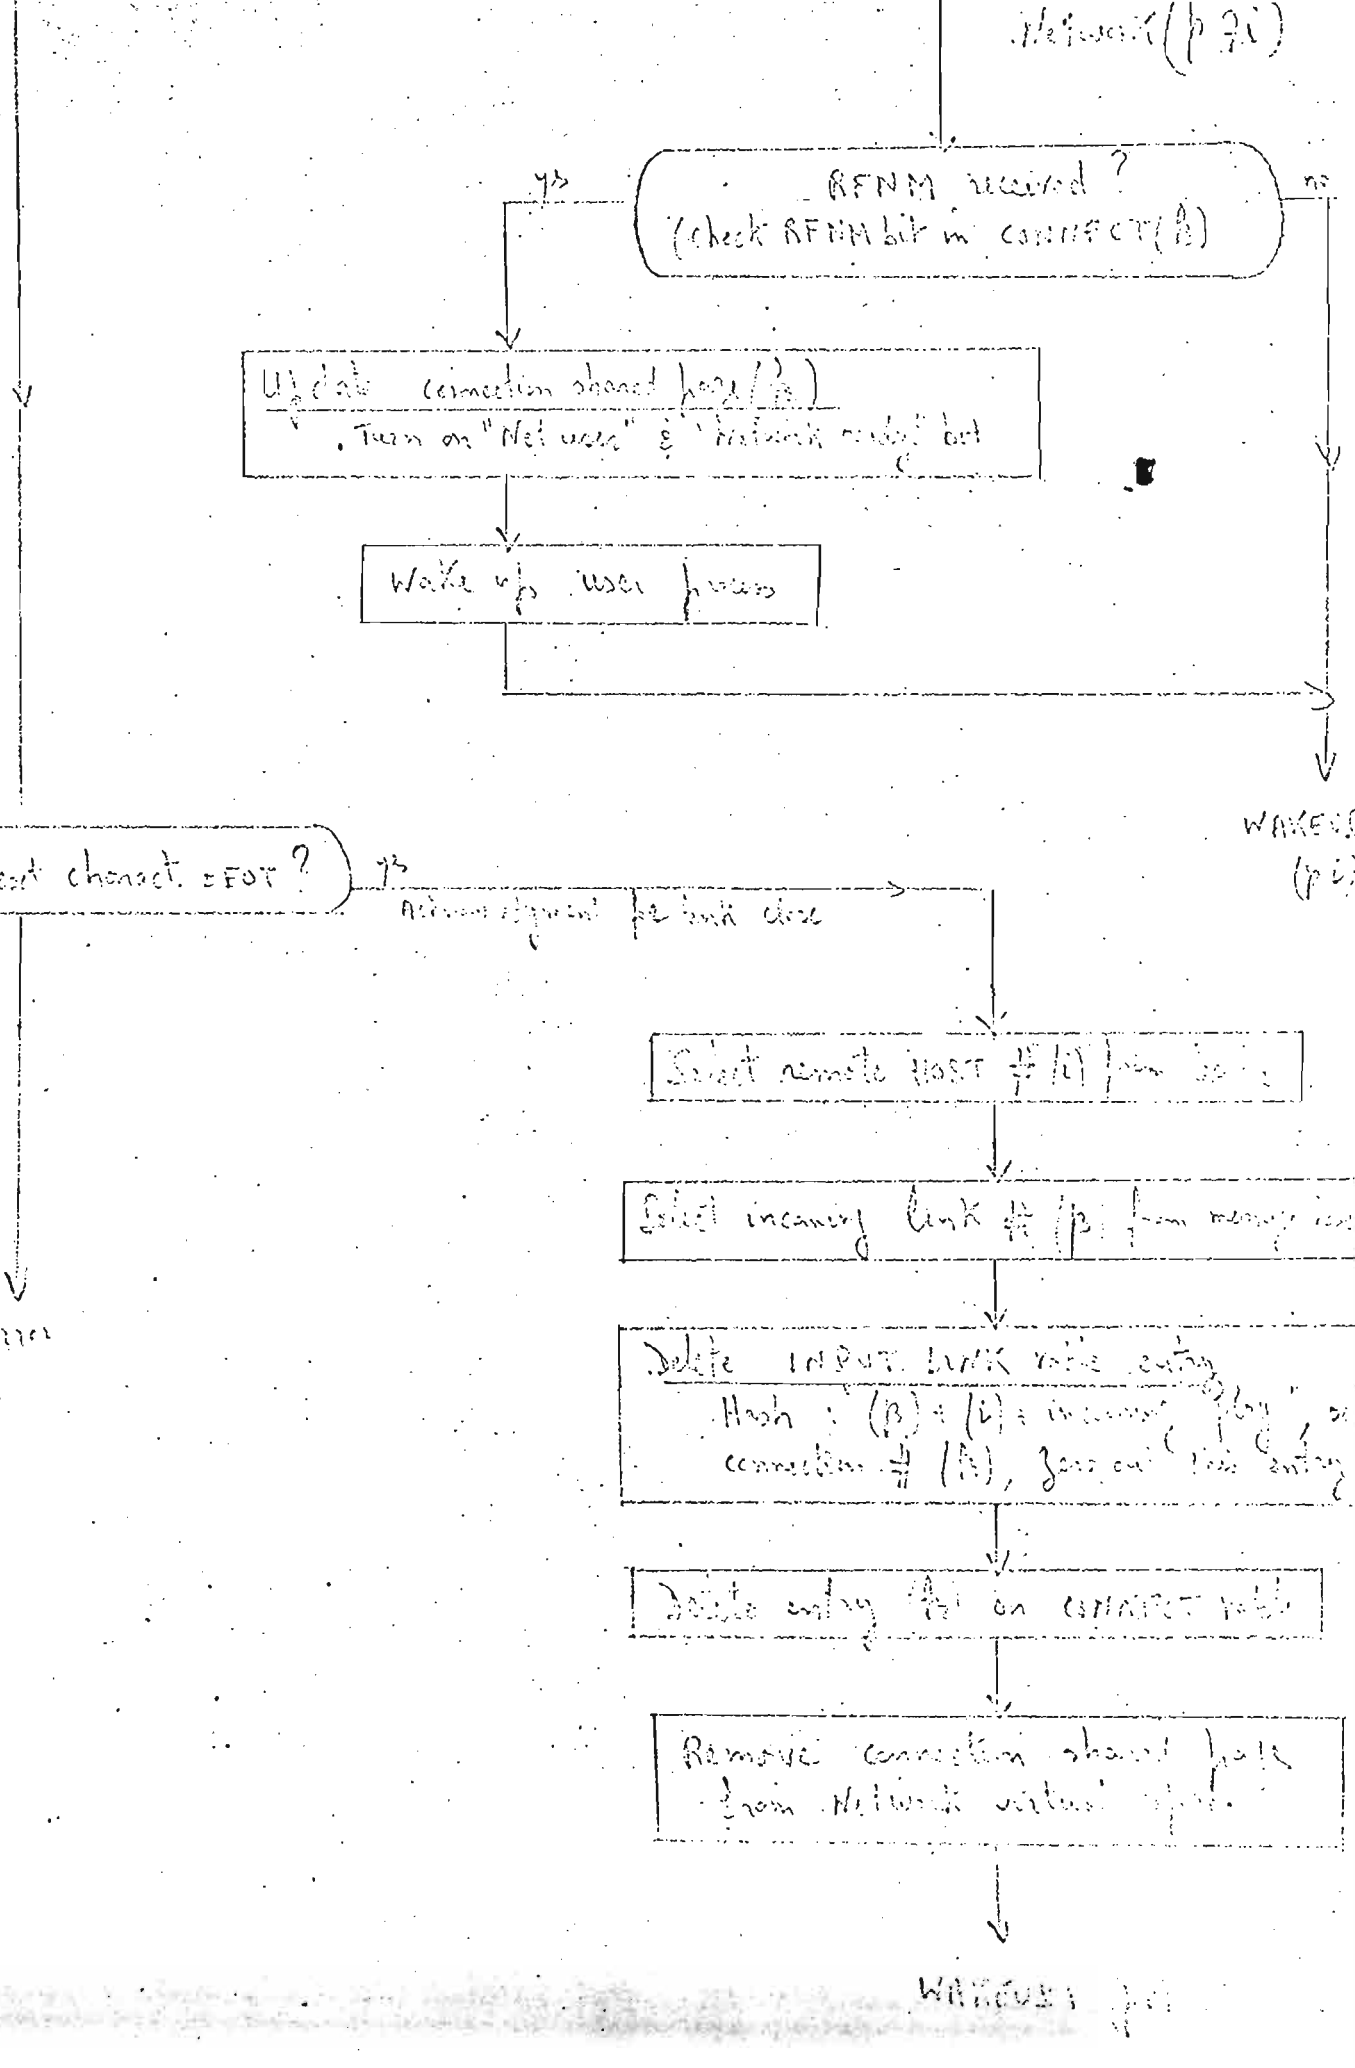 Network (p
RFNM received?
yes
no
(check RFNM bit in CONNECT(h)
Update connection shared page (h)
. Turn on "Net user" & "Network ready" bit
Wake up user process
charact. = EOT?
yes
Acknowledgment for link close
(p i)
Select remote HOST # (i) from
Select incoming link # (β) from message
Delete INPUT LINK table entry
Hash : (β) + (i) + incoming "flag",
connection # (h), zero out this entry
Delete entry (h) on CONNECT table
Remove connection shared page
from Network virtual space.